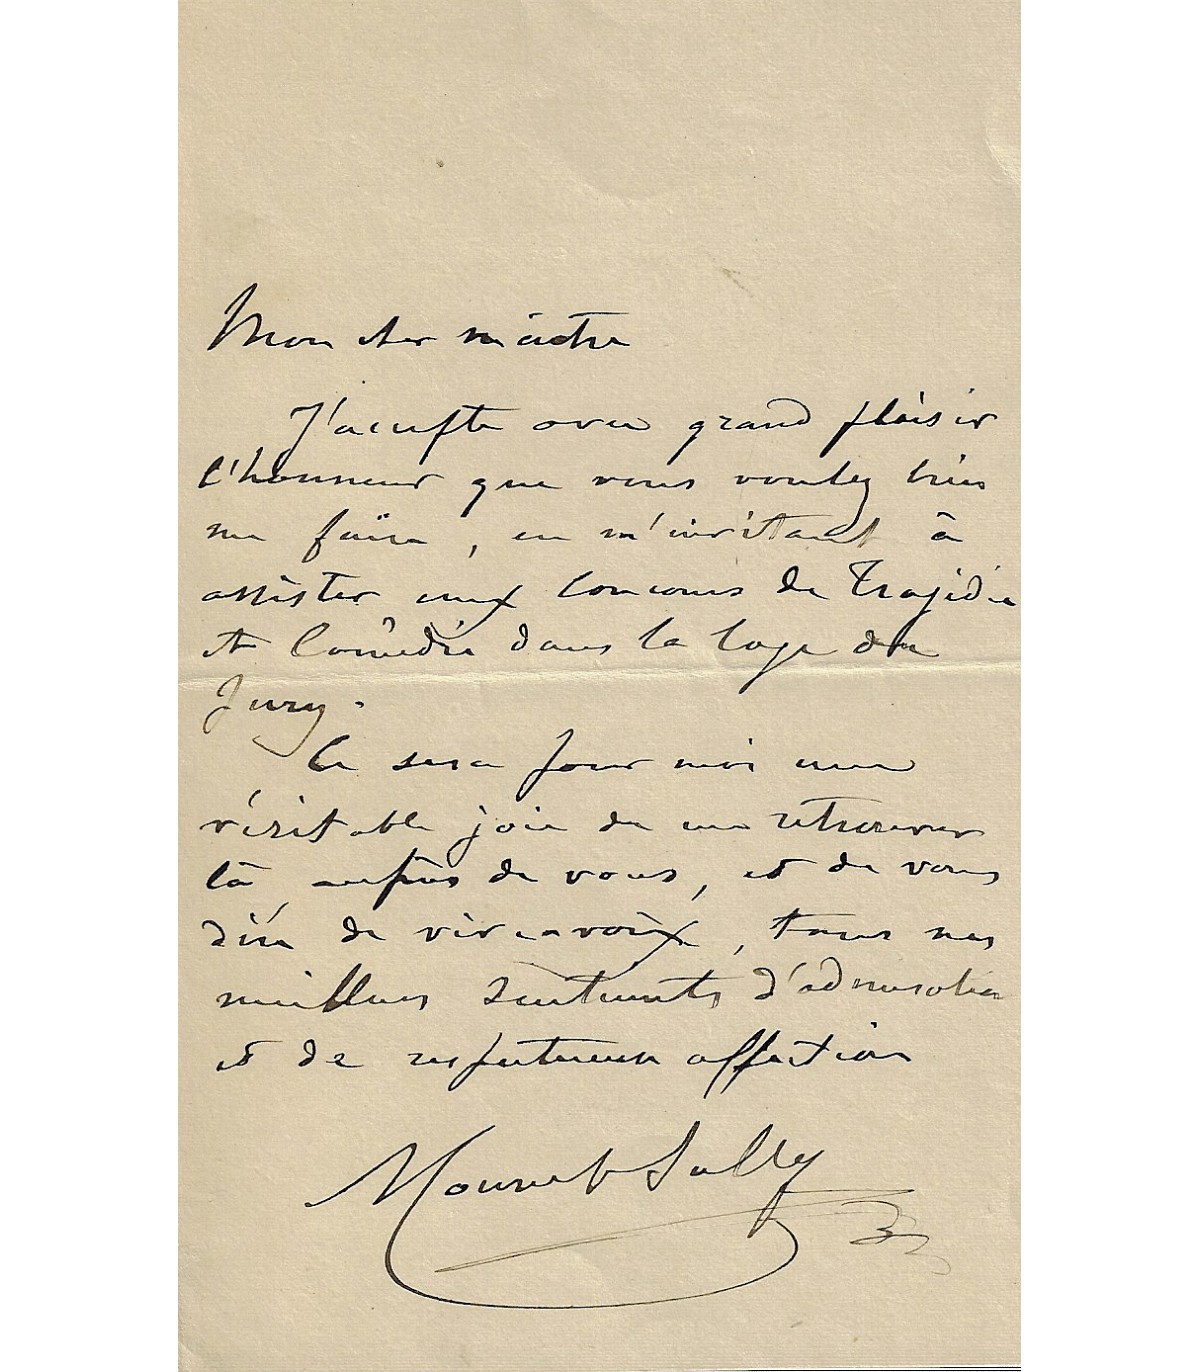 Mon cher maître
J'accepte avec grand plaisir
l'honneur que vous voulez bien
me faire, en m'invitant à
assister aux Concours de Tragédie
et Comédie dans la loge du
Jury.
Ce sera pour moi une
véritable joie de me retrouver
là auprès de vous, et de vous
dire de vive voix, tous mes
meilleurs sentiments d'admiration
et de respectueuse affection
Mounet Sully